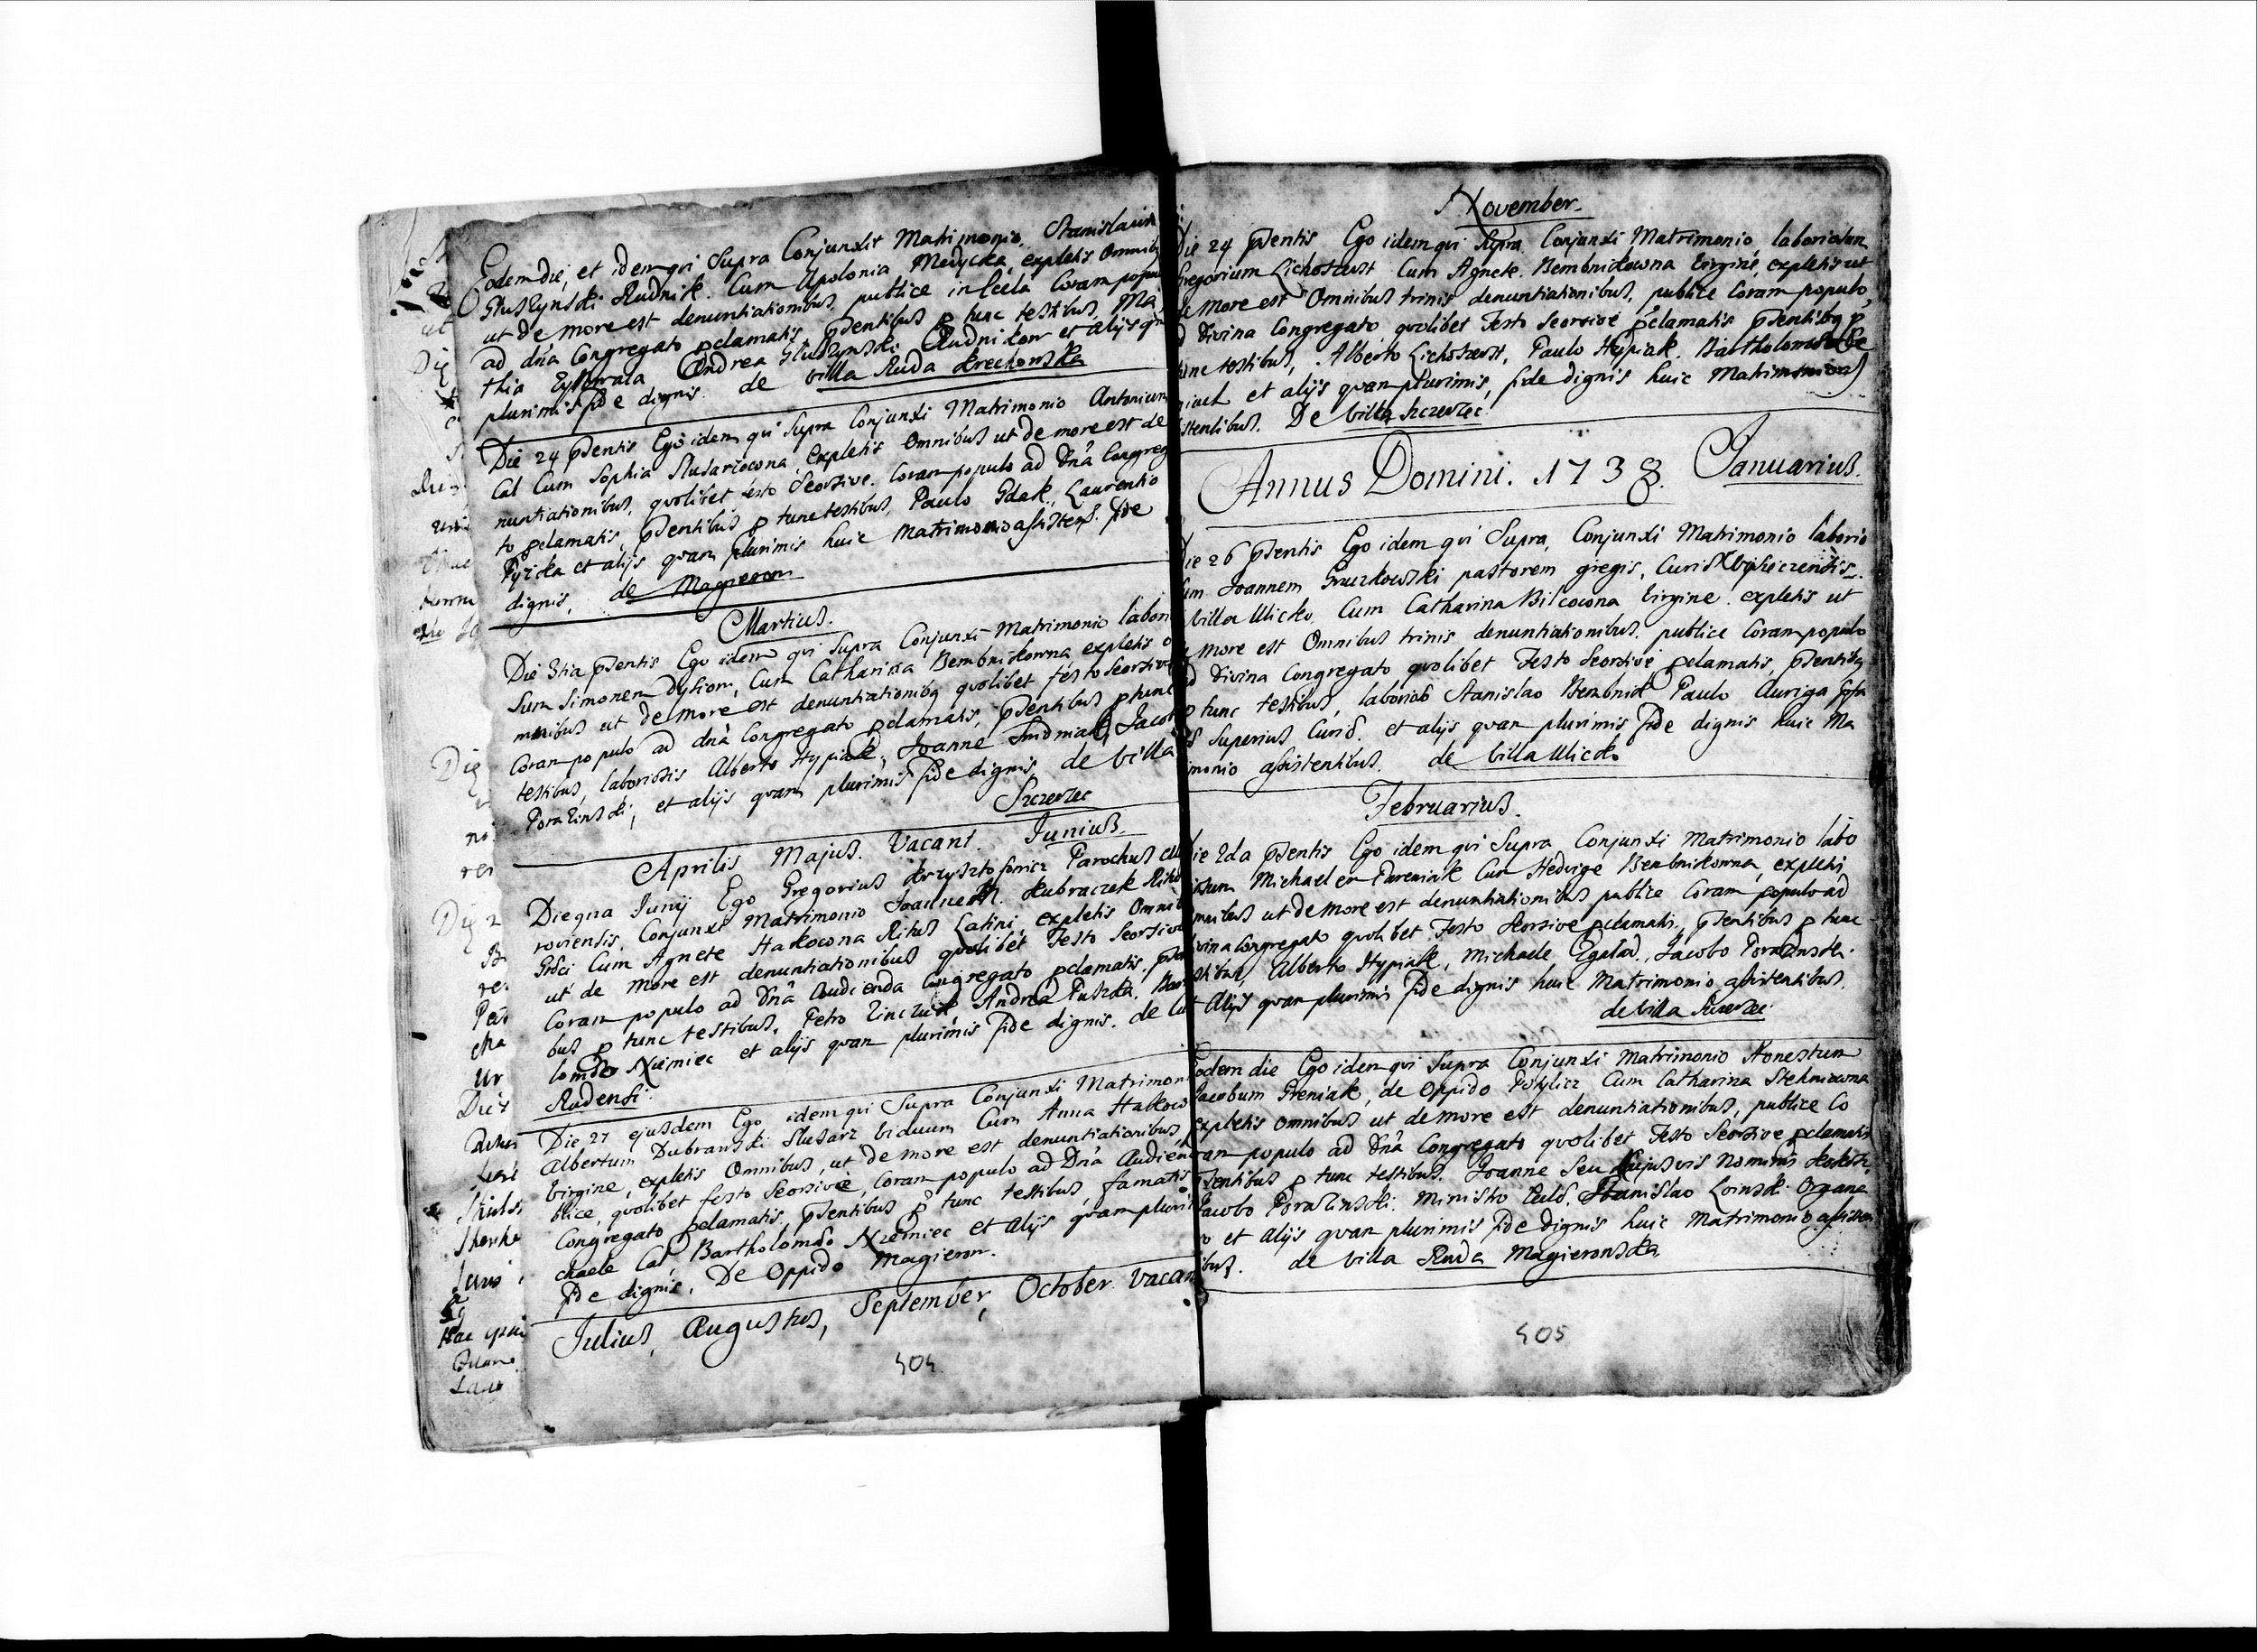 Eodem die, et idem qui Supra Conjunxit Matrimonio, Stanislaum
Gluszynski Rudnik. Cum Apolonia Medycka, expletis Omnib
ut de more est denuntiationibus, publice in Ecela Coram popu
ad dna Congregato pclamatis, psentibus p tunc testibus, Ma
thia Andrea Gluszynski Rudnikow et alijs qu
plurimis fide dignis. de villa Ruda Krechowska
Die 24 psentis Ego idem qui Supra Conjunxi Matrimonio Antonium
Cal Cum Sophia Slusarzowna, expletis Omnibus ut de more est de
nuntiationibus, quolibet festo Seorsive. Coram populo ad Dna Congreg
to pclamatis, psentibus p tunc testibus, Paulo Gdak, Laurentio
Pyzcka et alijs quam plurimis huic Matrimonio assistens. fide
dignis, de Magierow
Martius.
Die 3tia psentis Ego idem qui Supra Conjunxi Matrimonio labori
Sum Simonem Dyhon, Cum Catharina Bembnikowna expletis o
mnibus ut de more est denuntiationibq quolibet festo Seorsive
Coram populo ad dna Congregato pclamatis, psentibus p tunc
testibus, laboriosis Alberto Hypiak, Joanne Smidniak, Jacob
Porazinski, et alijs quam plurimis fide dignis, de villa
Szczerzec
Aprilis Majus. Vacant. Junius.
Die qna Junij Ego Gregorius Krzysztofowicz Parochus
roviensis. Conjunxi Matrimonio Joannem. Kubraczek Ritus
Grδci Cum Agnete Hakowna Ritus Latini, expletis Omnib
ut de more est denuntiationibus quolibet Festo Seorsive
Coram populo ad Dna Audienda Congregato pclamatis. psen
bus p tunc testibus. Petro Andrea Puszka, Bar
lomδo Niemiec et alijs quam plurimis fide dignis. de
Rudensi.
Die 27 ejusdem Ego idem qui Supra Conjunxi Matrimon
Albertum Dubranski Slusarz viduum Cum Anna Hakow
Virgine, expletis Omnibus, ut de more est denuntiationibus,
blice, quolibet festo Seorsive, Coram populo ad Dna Audien
Congregato pclamatis, psentibus p tunc testibus, famatis
chaele Cal, Bartholomδo Niemiec et alijs quam pluri
fide dignis, De Oppido Magierow.
Julius, Augustus, September, October. Vacan
404
November.
Die 24 psentis Ego idem qui Supra Conjunxi Matrimonio, laboriosum
Gregorium Lichoszerst Cum Agnete Bembnikowna Virgine, expletis ut
de More est Omnibus trinis denuntiationibus, publice Coram populo,
d Divina Congregato quolibet Festo Seorsive pclamatis psentibq p
tunc testibus, Alberto Lichoszerst, Paulo Hypiak. Bartholomδo
et alijs quam plurimis, fide dignis huic Matrimonio
stentibus. De Villa Szczerzec.
Annus Domini. 1738. Januarius.
Die 26 psentis Ego idem qui Supra, Conjunxi Matrimonio laborio
sum Joannem Gruszkowski pastorem gregis, Curis
villa Ulicko, Cum Catharina Bilcowna Virgine. expletis ut
more est Omnibus trinis denuntiationibus. publice Coram populo
ad Divina Congregato quolibet Festo Seorsive pclamatis, psentibq
p tunc testibus, laboriob Stanislao Bembnik Paulo Auriga
Superius Curiδ. et alijs quam plurimis fide dignis huic Ma
imonio assistentibus. de Villa Ulicko
Februarius.
Die 2da psentis Ego idem qui Supra Conjunxi Matrimonio labo
Michaelem Pareniak Cum Hedvige Bembnikowna, expletis
mnibus ut de more est denuntiationibus publice Coram populo ad
vina Congregato quolibet Festo Seorsive pclamatis, psentibus p tunc
stibus, Alberto Hypiak, Michaele Jacobo Porazinski.
t Alijs quam plurimis fide dignis huic Matrimonio assistentibus.
de Villa Szczerzec
Eodem die Ego idem qui Supra Conjunxi Matrimonio Honestum
Jacobum Greniak, de Oppido Potylicz Cum Catharina Stehniowna
expletis omnibus ut de more est denuntiationibus, publice Co
ram populo ad Dna Congregato quolibet Festo Seorsive pclamatis
psentibus p tunc testibus. Joanne Seu Cujusvis Nominis
Jacobo Porazinski. Ministro Eclδ, Stanislao Loinski Organa
o et alijs quam plurimis fide dignis huic Matrimonio assisten
ibus. de Villa Ruda Magierowska
405